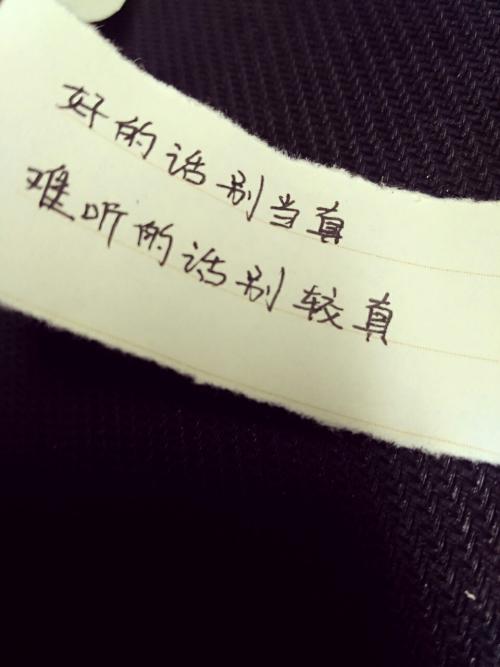 好的话别当真
难听的话别较真